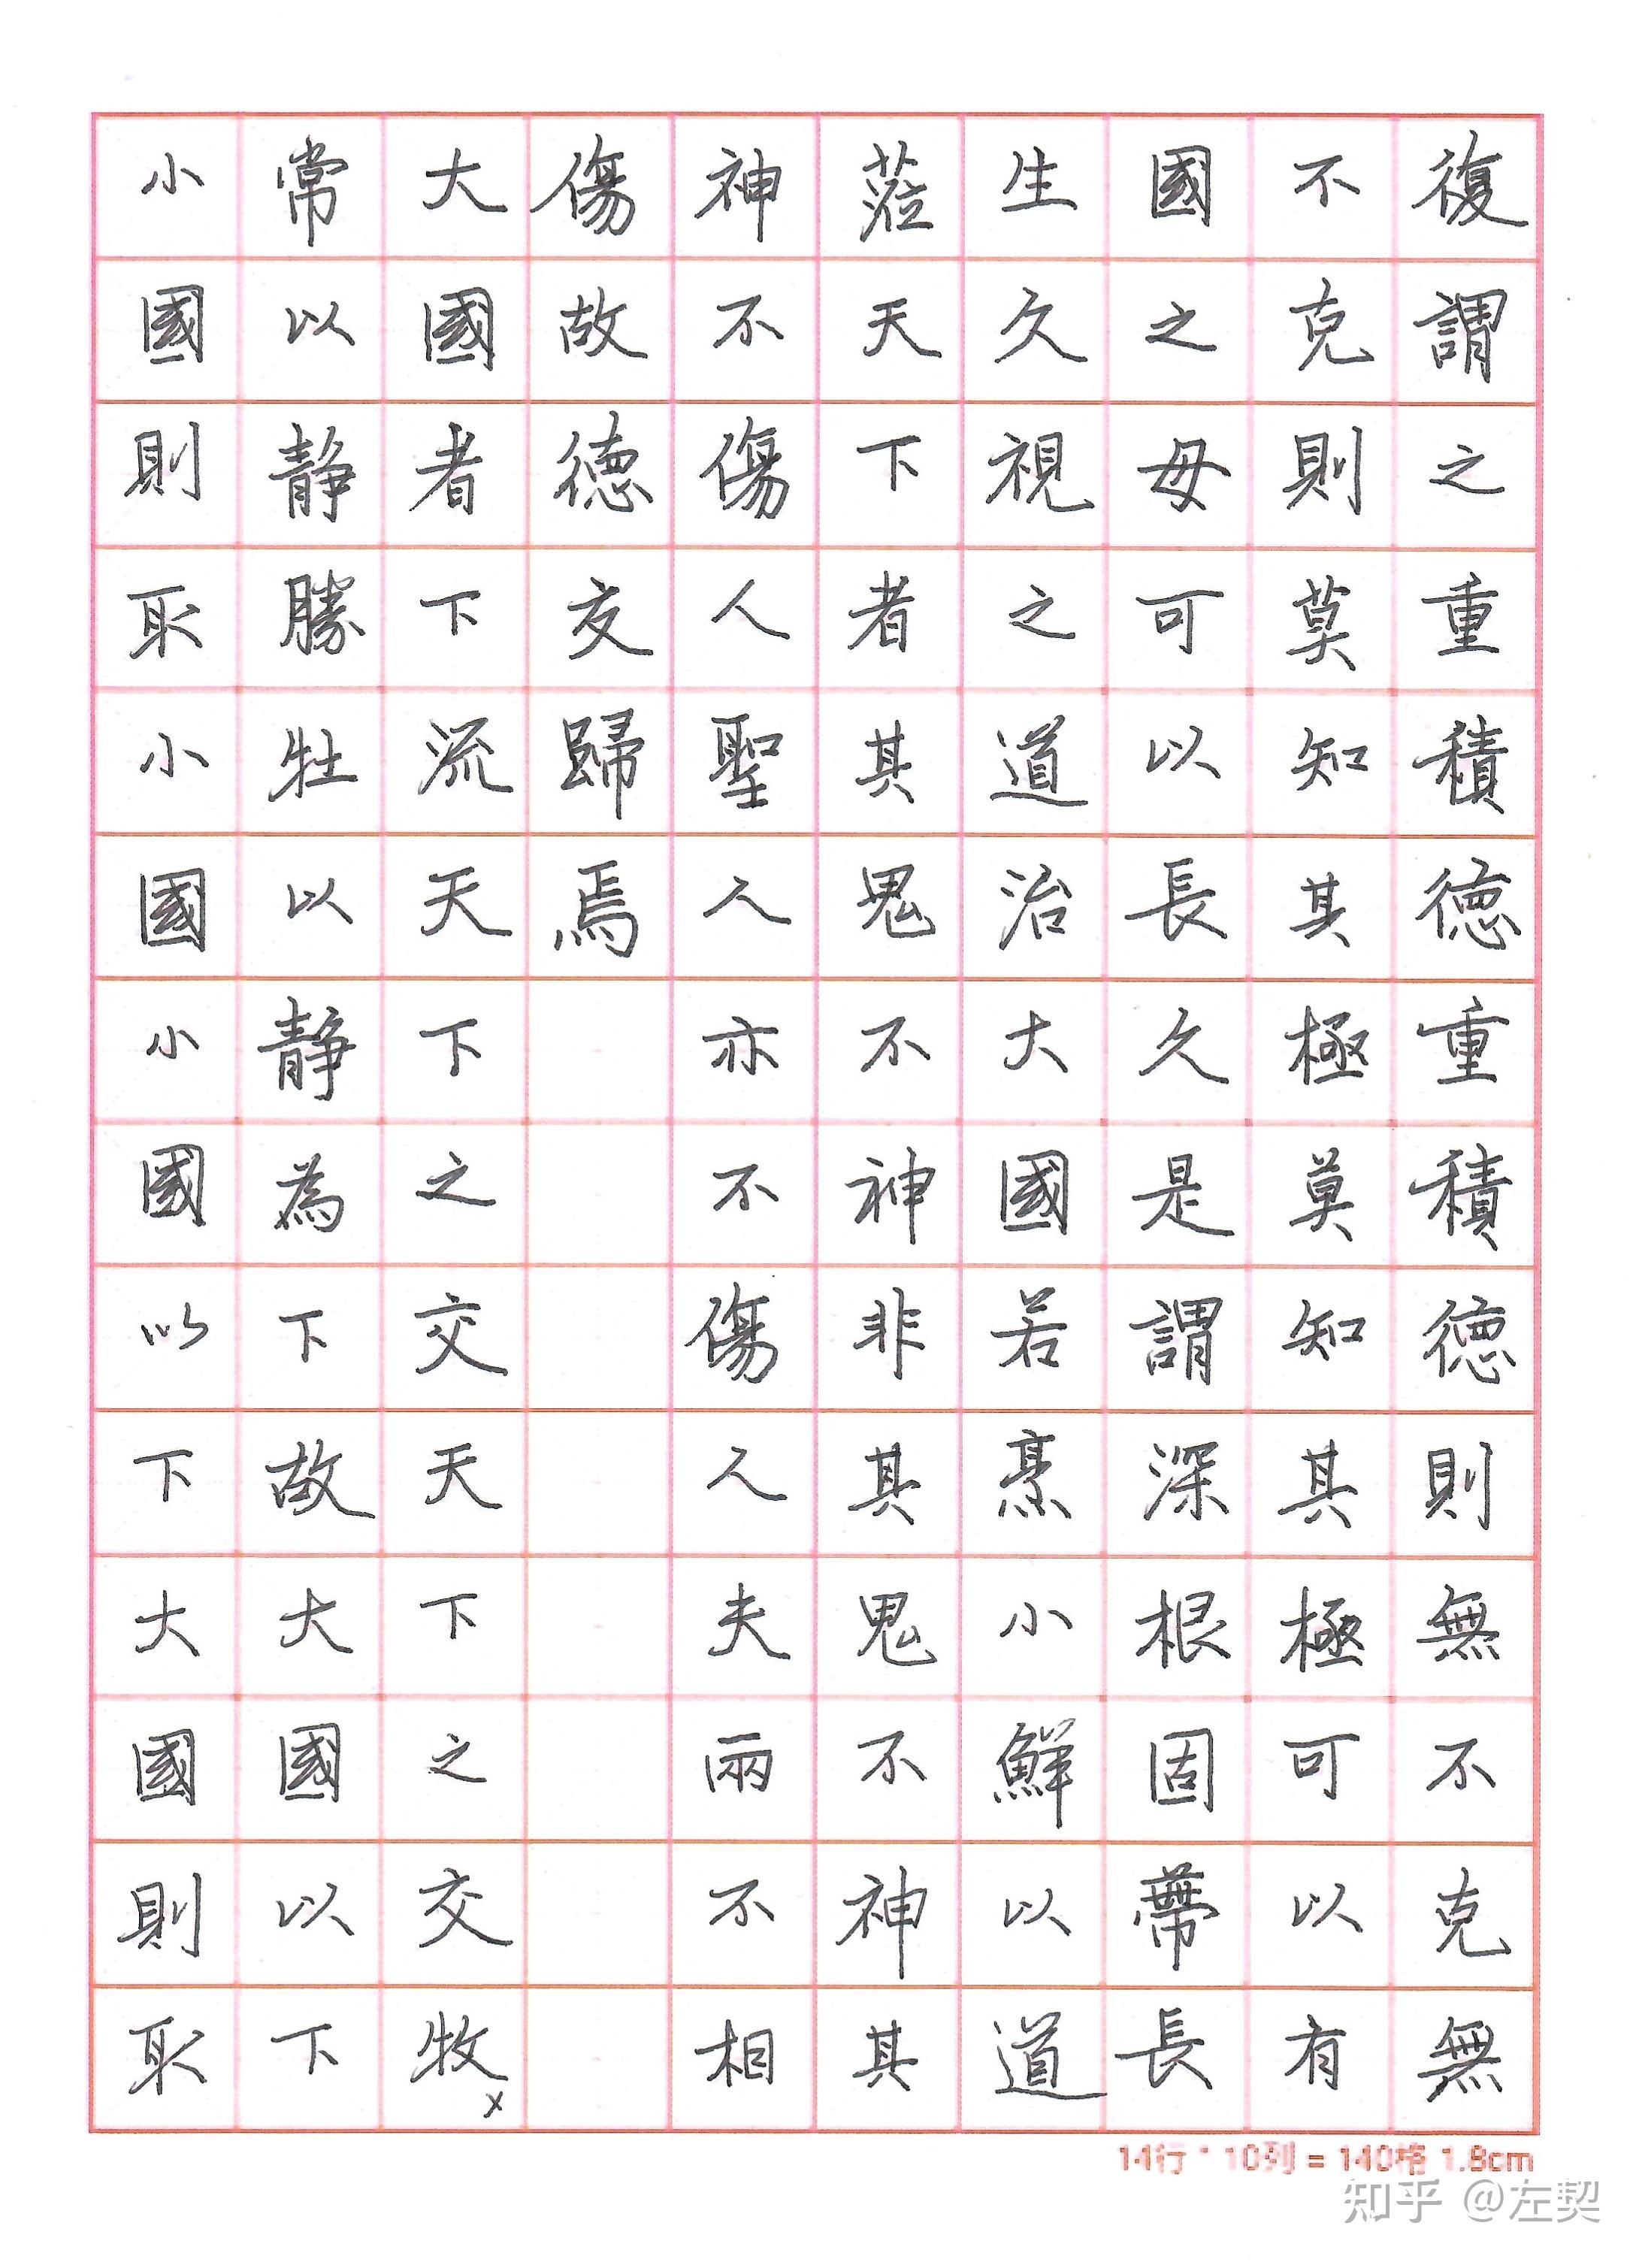 復謂之重積德重積德則無不克無
不克則莫知其極莫知其極可以有
國之母可以長久是謂深根固蔕長
生久視之道治大國若烹小鮮以道
蒞天下者其鬼不神非其鬼不神其
神不傷人聖人亦不傷人夫兩不相
傷故德交歸焉
大國者下流天下之交天下之交牧x
常以靜勝牡以靜為下故大國以下
小國則取小國小國以下大國則取
14行*10列=140格 1.8cm
知乎 @左契